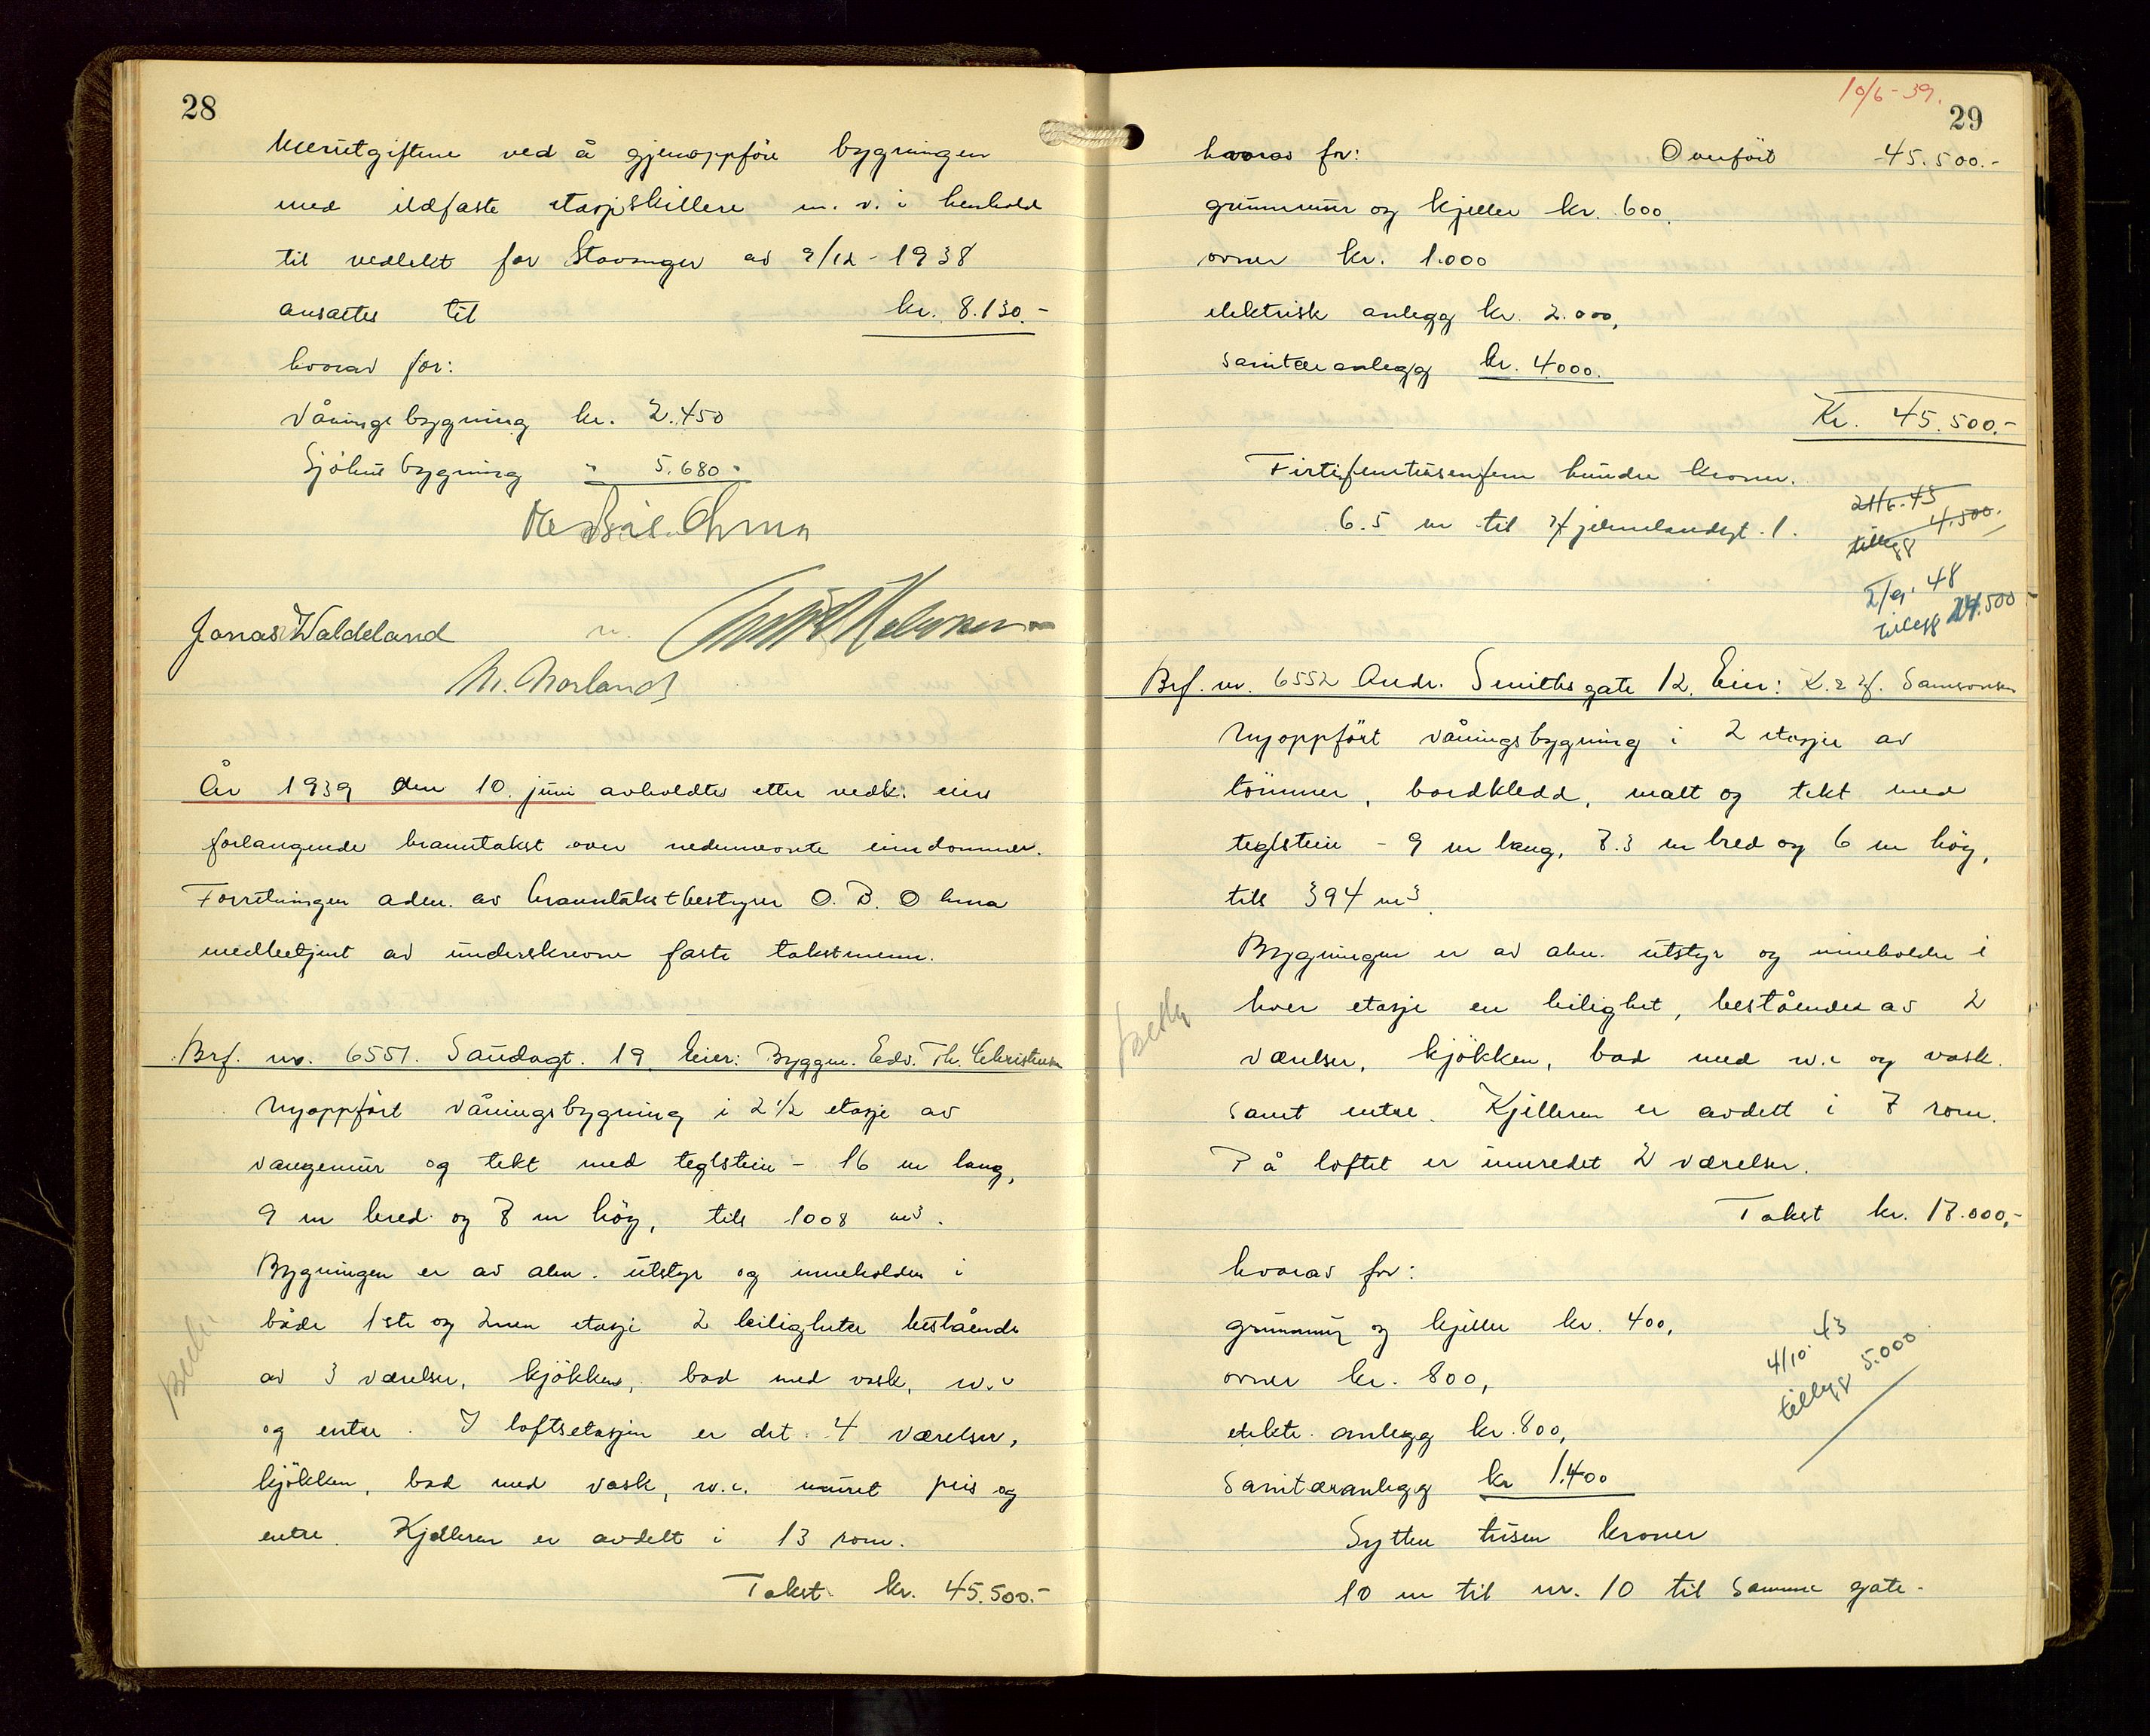 28
Merutgiftene ved å gjenoppføre bygningen
med ildfaste etasjeskillere m. v. i henhold
til vedtekt for Stavanger av 9/12 - 1938
ansattes til kr. 8.130.-
hvorav for:
Våningsbygning kr. 2.450
Sjöhusbygning " 5.680 "
Ohma
Jonas Waldeland
M. Norland
År 1939 den 10. juni avholdtes etter vedk. eiers
forlangende branntakst over nedennevnte eiendommer.
Forretningen adm. av branntakstbestyrer O. B. Ohma
medbetjent av underskrevne faste takstmenn.
Brf. nr. 6551. Saudagt. 19. Eier: Byggm. Edv. Th. Christensen
Nyoppfört våningsbygning i 2 1/2 etasje av
vangemur og tekt med teglstein - 16 m lang,
9 m bred og 7 m höy, tils 1008 m³.
Bygningen er av alm. utstyr og inneholder i
både 1ste og 2nen etasje 2 leiligheter bestående
av 3 værelser, kjökken, bad med vask, w.c
og entre. I loftsetasjen er det 4 værelser,
kjökken, bad med vask, w.c. muret peis og
entre. Kjelleren er avdelt i 13 rom.
Takst kr. 45.500.-
10/6-39.
29
hvorav for: Overfört 45.500.-
grunnmur og kjeller kr. 600.
ovner kr. 1.000
elektrisk anlegg kr. 2.000,
sanitæranlegg kr. 4000.
Kr. 45.500.-
Firtifemtusenfem hundre kroner.
6.5 m til Hjelmelandsgt. 1.
21/6.45
tillegg 4.500.
2/9. 48
tillegg 24.500
Brf. nr. 6552 Andr. Smithsgate 12. Eier: K. & H. Samsonsen
Nyoppfört våningsbygning i 2 etasjer av
tömmer, bordkledd, malt og tekt med
teglstein - 9 m lang, 7.3 m bred og 6 m höy,
tils 394 m³
Bygningen er av alm. utstyr og inneholder i
hver etasje en leilighet, bestående av 2
værelser, kjökken, bad med w.c og vask.
samt entre. Kjelleren er avdelt i 7 rom.
På loftet er innredet 2 værelser.
Takst kr. 17.000,-
hvorav for:
grunnmur og kjeller kr. 400,
ovner kr. 800,
elektr. anlegg kr. 800,
Sanitæranlegg kr 1.400
4/10. 43
tillegg 5.000
Sytten tusen kroner
10 m til nr. 10 til samme gate.